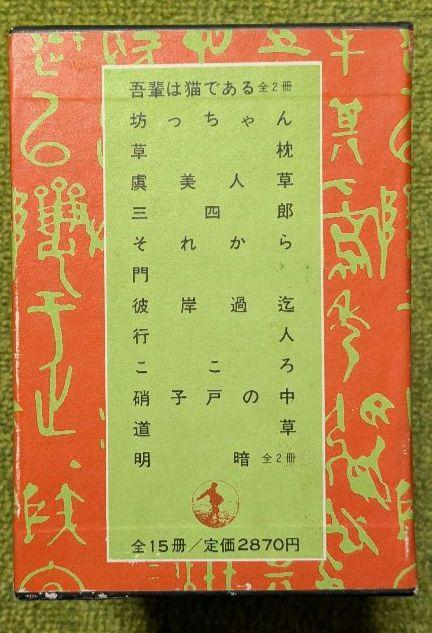 吾輩は猫である全2冊
坊っちゃん
草枕
虞美人草
三四郎
それから
門
彼岸過迄
行人
こころ
硝子戸の中
道草
明暗全2冊
全15冊/定価2870円